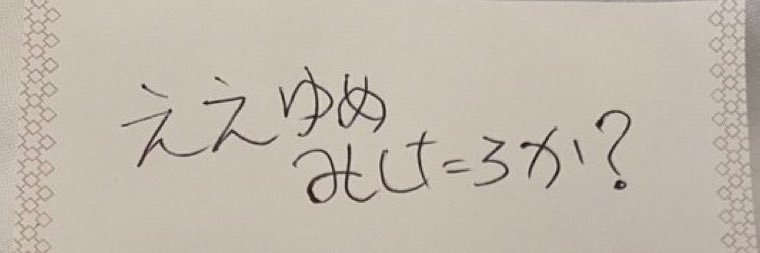 ええゆめ
みしたろか?